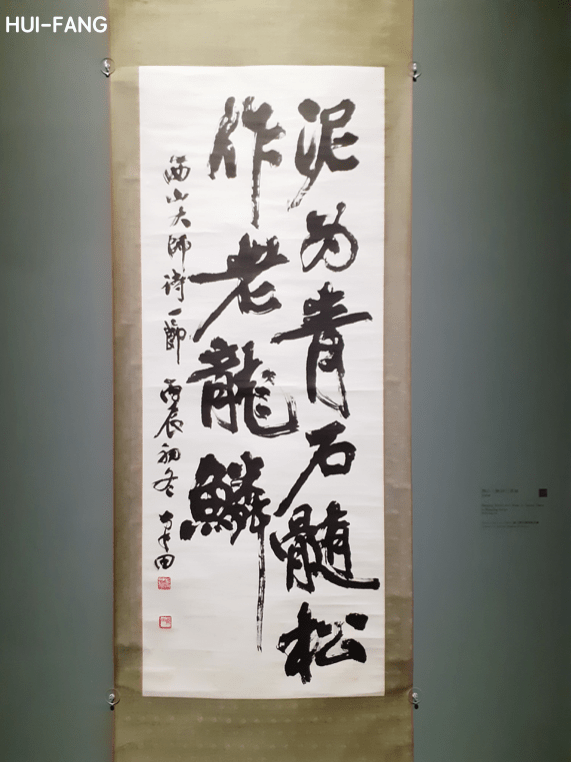 HUI-FANG
泥为青石髓松
作老龍鱗
西山大師詩一節 丙辰初冬